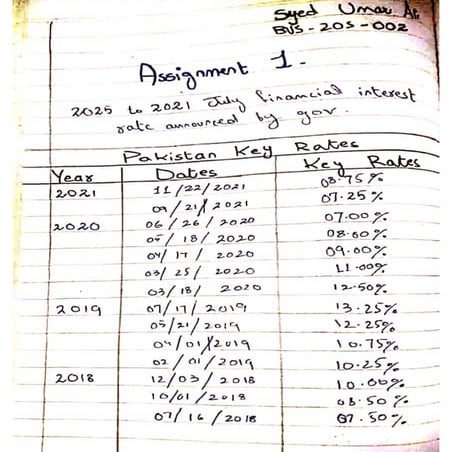 Syed Umar Ali
BUS-205-002
Assignment 1.
2025 to 2021 July financial interest
rate announced by gov.
Pakistan Key Rates
Year Dates Key Rates
2021 11/22/2021 08.75%
09/21/2021 07.25%
2020 06/26/2020 07.00%
05/18/2020 08.00%
04/17/2020 09.00%
03/25/2020 11.00%
03/18/2020 12.50%
2019 07/17/2019 13.25%
05/21/2019 12.25%
04/01/2019 10.75%
02/01/2019 10.25%
2018 12/03/2018 10.00%
10/01/2018 08.50%
07/16/2018 07.50%